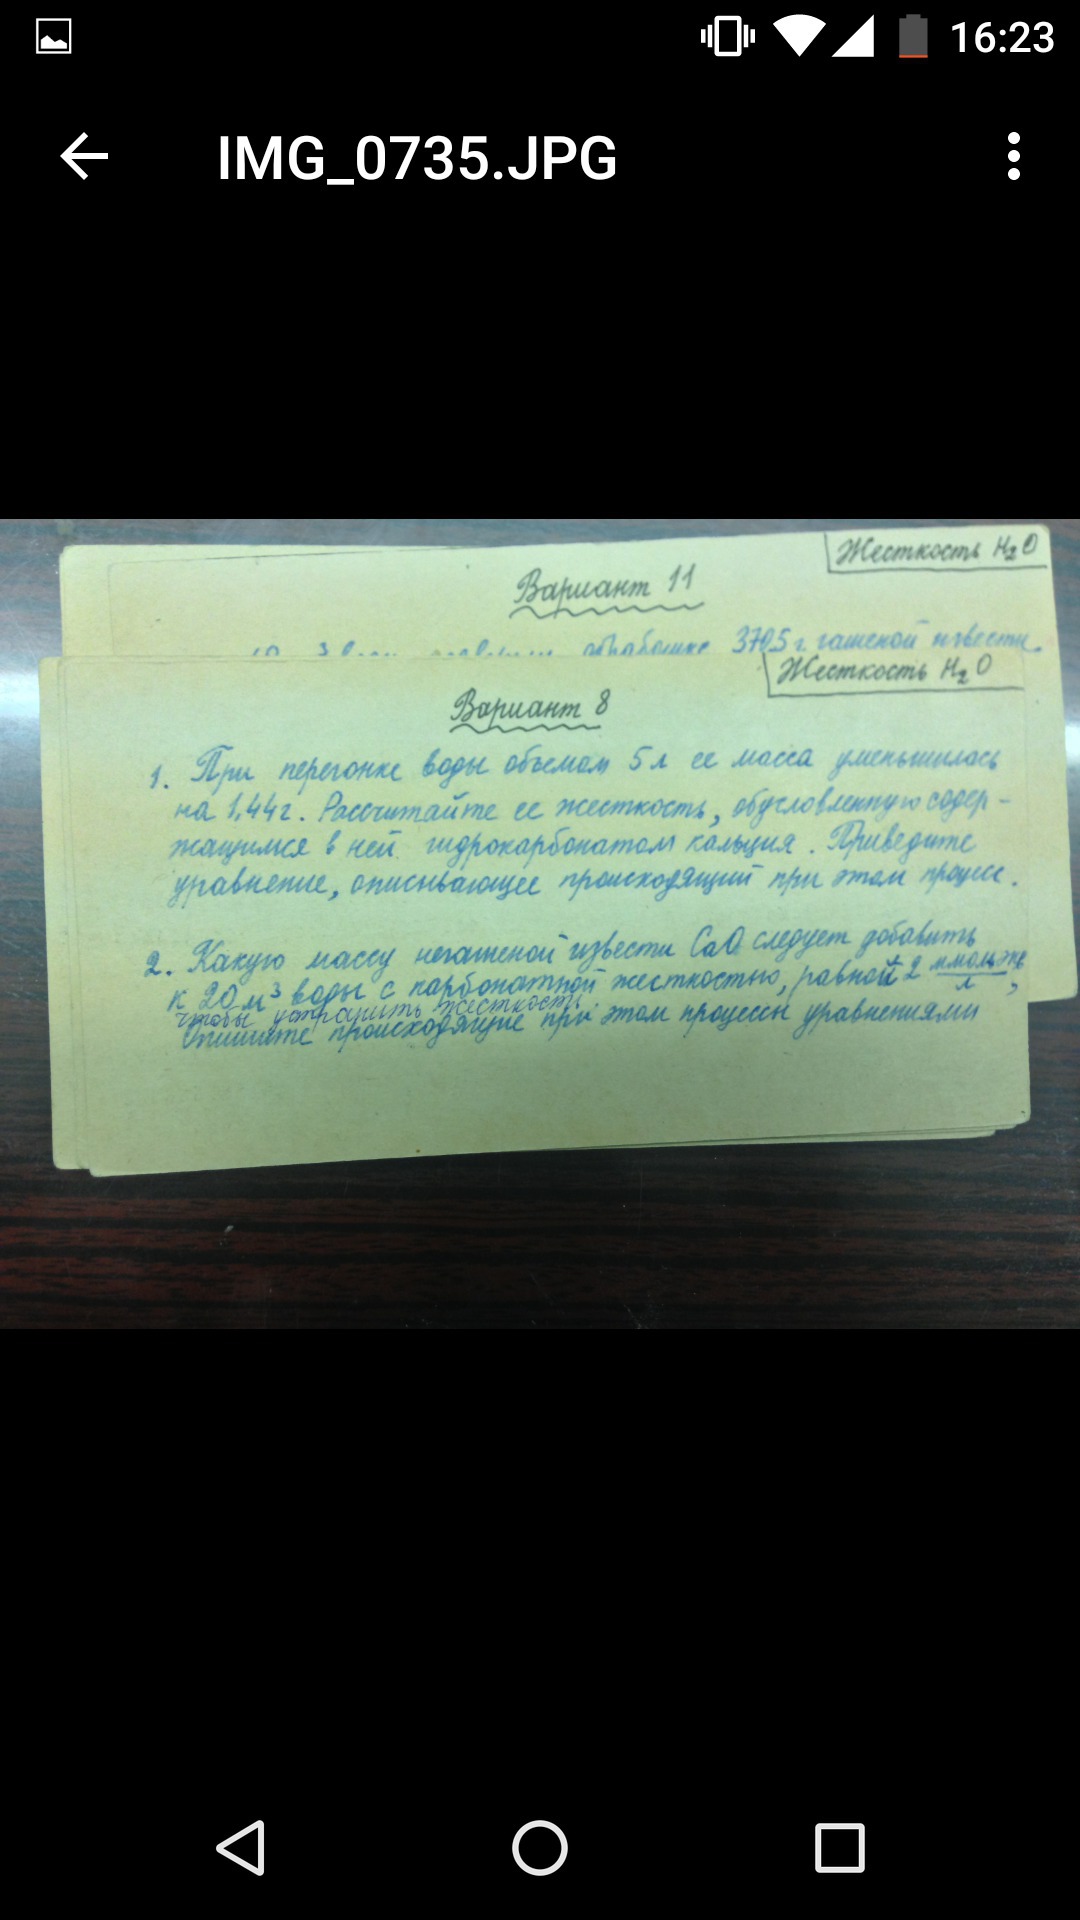 16:23
IMG_0735.JPG
Жесткость H₂O
Вариант 11
обработке 370,5 г. гашеной извести.
Жесткость H₂O
Вариант 8
1. При перегонке воды объемом 5 л ее масса уменьшилась
на 1,44 г. Рассчитайте ее жесткость, обусловленную содер-
жащимся в ней гидрокарбонатом кальция. Приведите
уравнение, описывающее происходящий при этом процесс.
2. Какую массу негашеной извести CaO следует добавить
к 20 м³ воды с карбонатной жесткостью, равной 2 ммоль экв/л,
чтобы устранить жесткость.
Опишите происходящие при этом процессы уравнениями